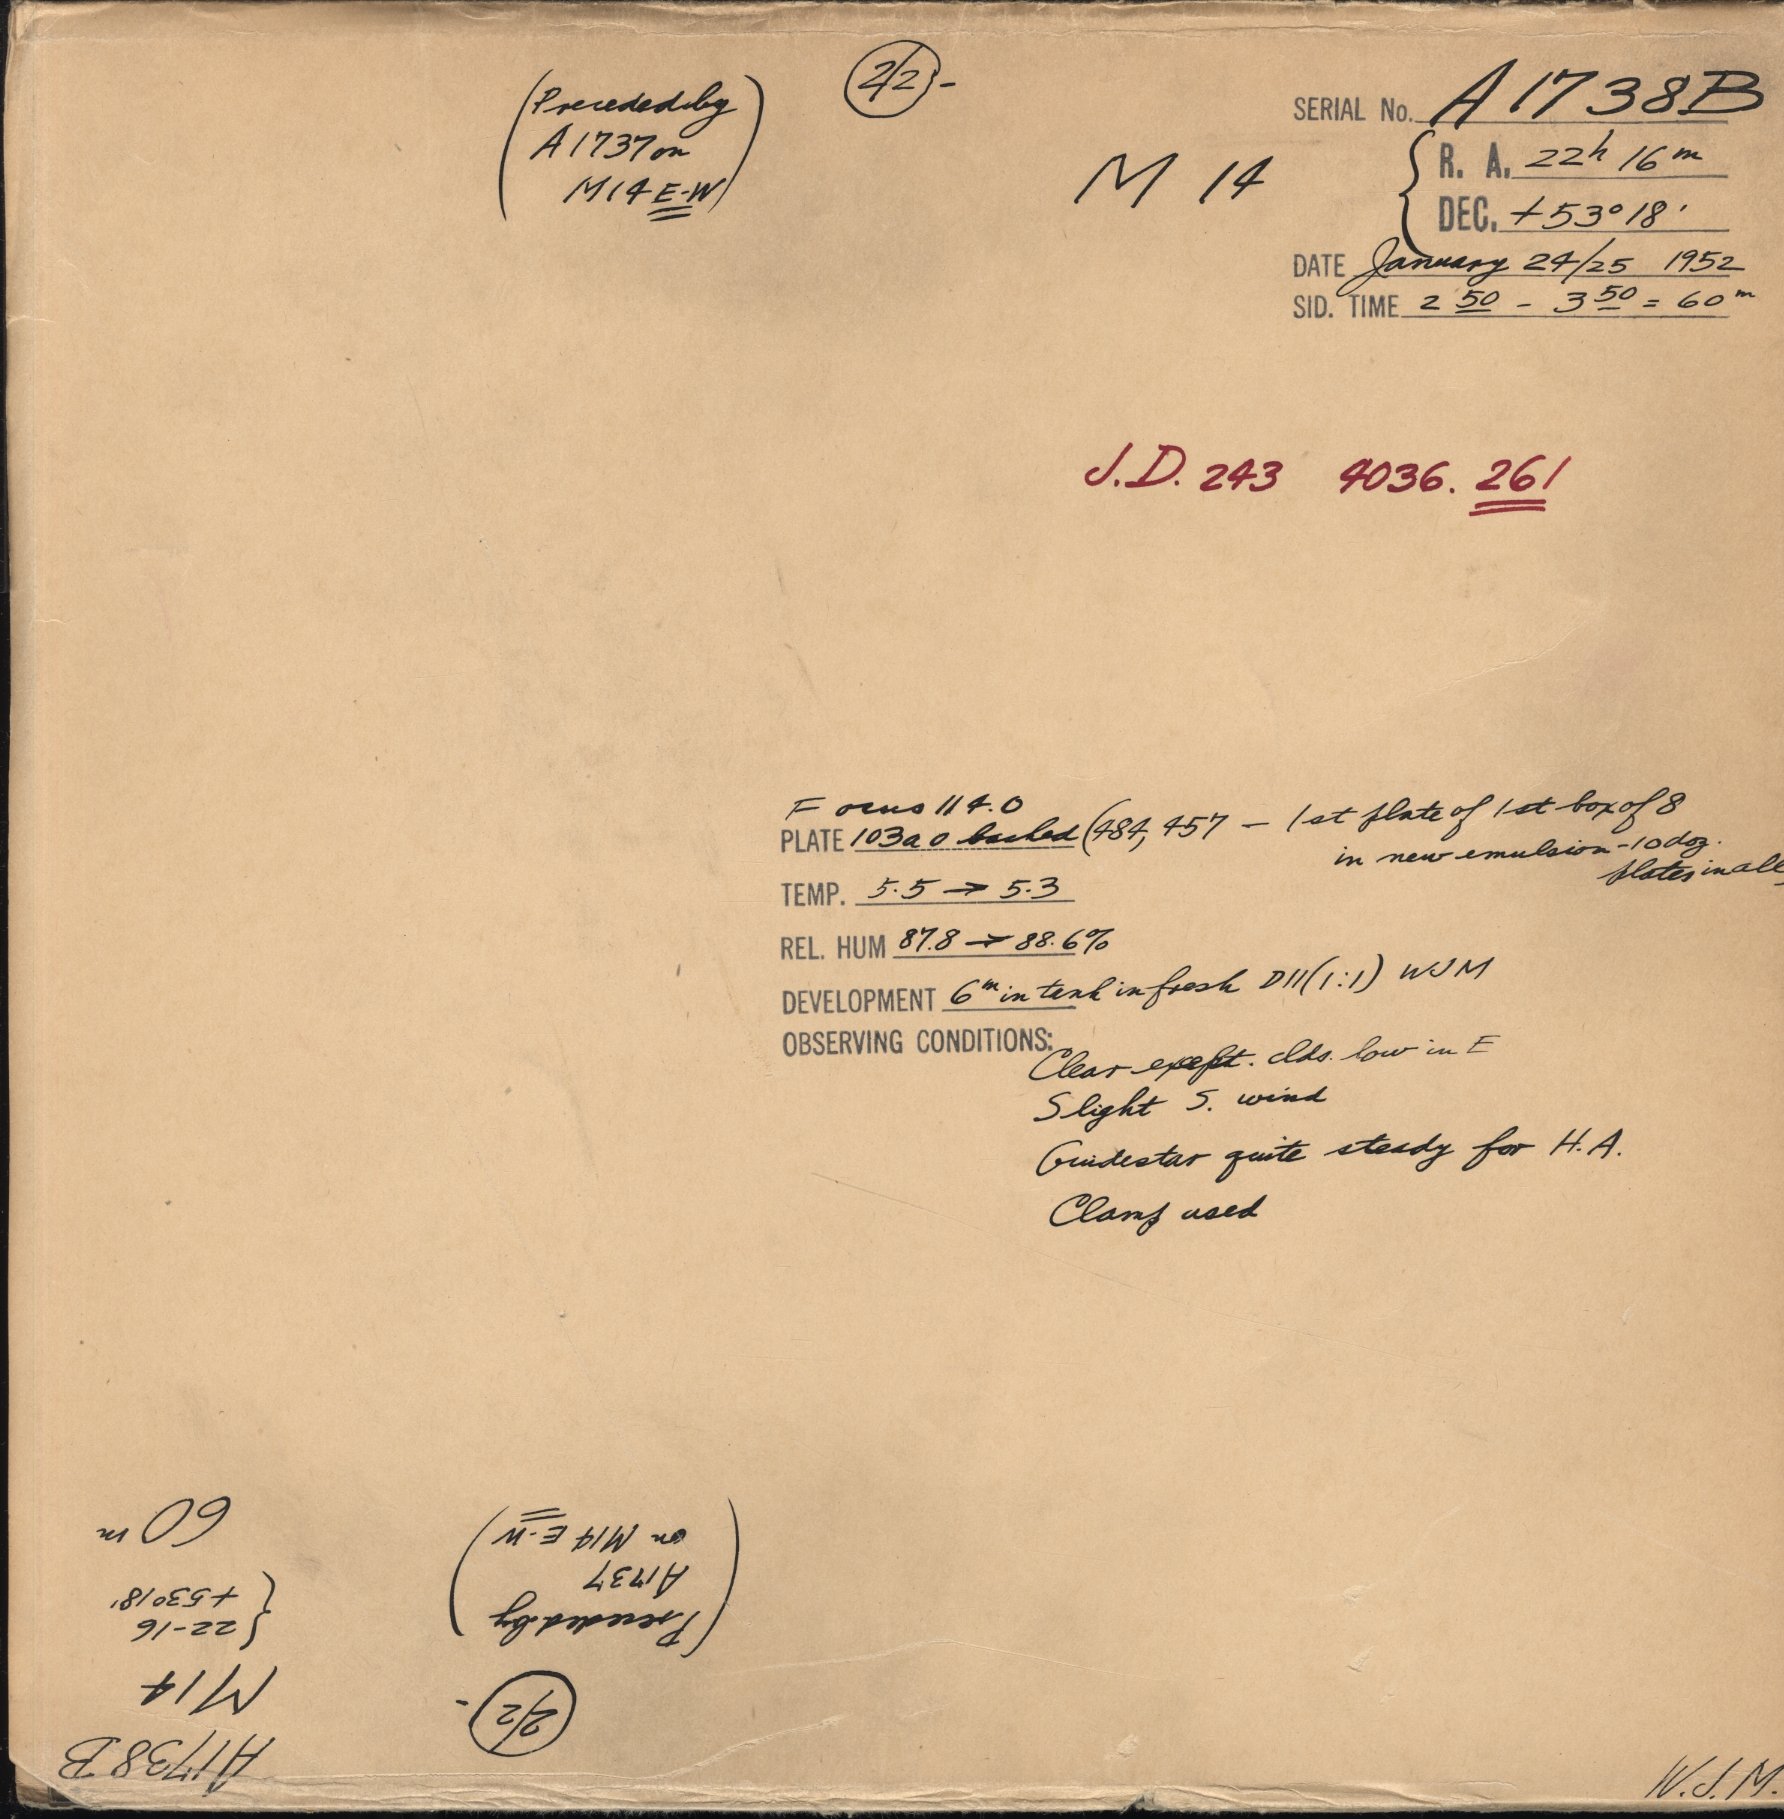 (Preceded by
A1737 on
M14 E-W)
2/2 -
M 14
SERIAL No. A1738B
R. A. 22h 16m
DEC. +53° 18'
DATE January 24/25 1952
SID. TIME 2 50 - 3 50 = 60m
J.D. 243 4036.261
Focus 114.0
PLATE 103a O backed (484,457 - 1st plate of 1st box of 8
in new emulsion - 10 doz.
plates in all
TEMP. 5.5 → 5.3
REL. HUM 87.8 → 88.6%
DEVELOPMENT 6m in tank in fresh D11 (1:1) WJM
OBSERVING CONDITIONS:
Clear except. clds. low in E
Slight S. wind
Guidestar quite steady for H.A.
Clamp used
W.J.M.
A1738B
M14
22-16
+53°18'
60m
2/2 -
(Preceded by
A1737
on M14 E-W)